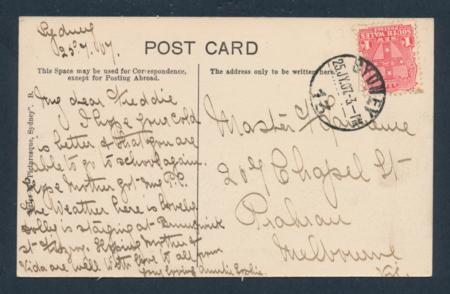 Sydney
25.7.07.
POST CARD
This Space may be used for Correspondence,
except for Posting Abroad.
The address only to be written here.
My dear Freddie
I hope your cold
is better & that you are
able to go to school again.
Hope Mother got my P.P.
The Weather here is lovely
Dolly is staying at Brunswick
St Fitzroy. Hoping Mother &
Vida are well With love to all from
your loving Auntie
Master F.
207 Chapel St
Prahran
Melbourne
Vic.
SYDNEY
25.JY.07.3-PM
13
NEW
SOUTH WALES
POSTAGE
1
Picturesque, Sydney". B.